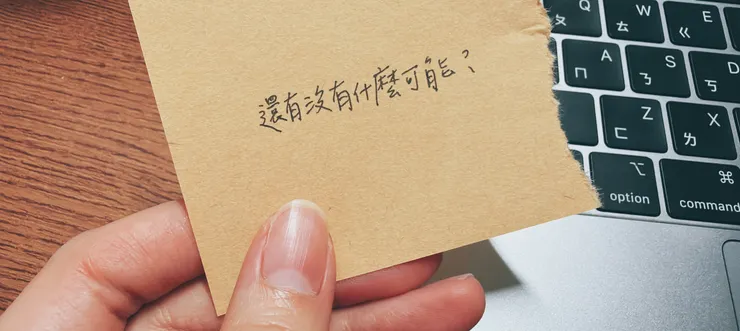 還有沒有什麼可能？
Q ㄆ W ㄊ E ㄍ
A ㄇ S ㄋ D ㄎ
Z ㄈ X ㄌ
⌥ option ⌘ command